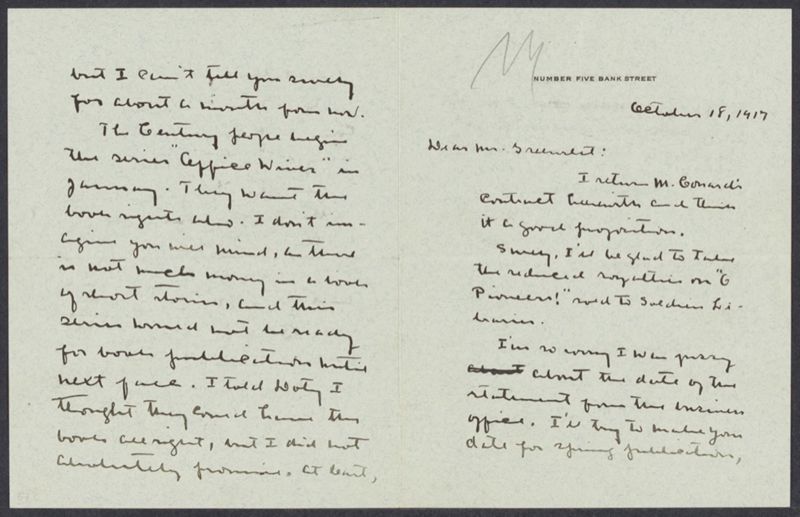 NUMBER FIVE BANK STREET
October 18, 1917
Dear Mr. Greenslet:
I return M. Conard's
contract herewith and think
it a good proposition.
Surely, I'll be glad to take
the reduced royalties on "O
Pioneers!" sold to Soldier Li-
braries.
I'm so sorry I was fussy
about the date of the
statement from the business
office. I'll try to make your
date for spring publication,
but I can't tell you surely
for about a month from now.
The Century people begin
the series "Office Wives" in
January. They want the
book rights also. I don't im-
agine you will mind, as there
is not much money in a book
of short stories, and this
series would not be ready
for book publication until
next fall. I told Doty I
thought they could have the
book all right, but I did not
absolutely promise. At least,